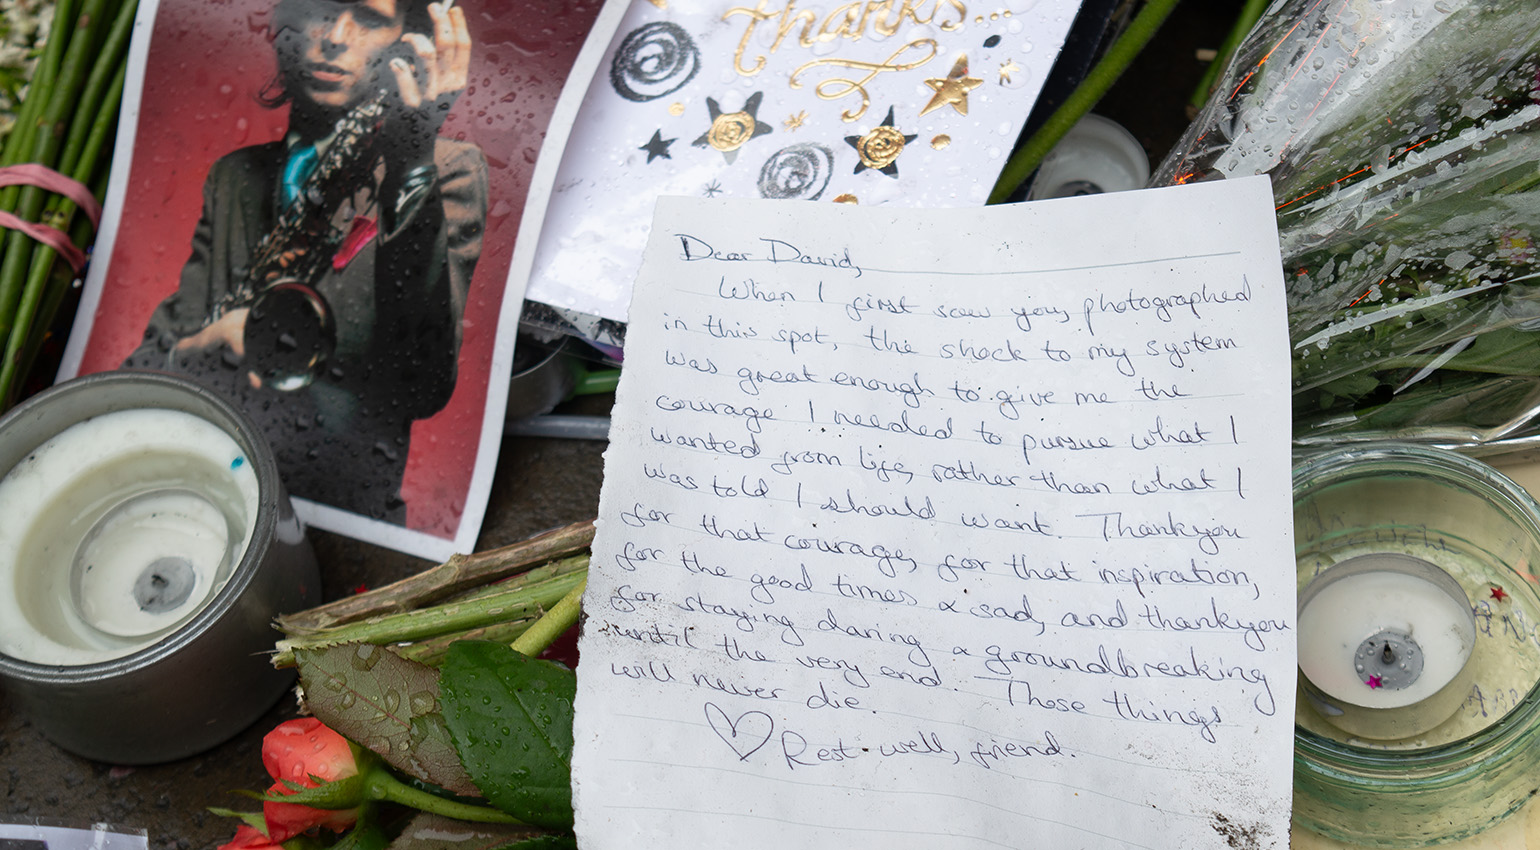 thanks...
Dear David,
When I first saw you, photographed
in this spot, the shock to my system
was great enough to give me the
courage I needed to pursue what I
wanted from life, rather than what I
was told I should want. Thankyou
for that courage, for that inspiration,
for the good times & sad, and thankyou
for staying daring & groundbreaking
until the very end. Those things
will never die.
♡ Rest well, friend.